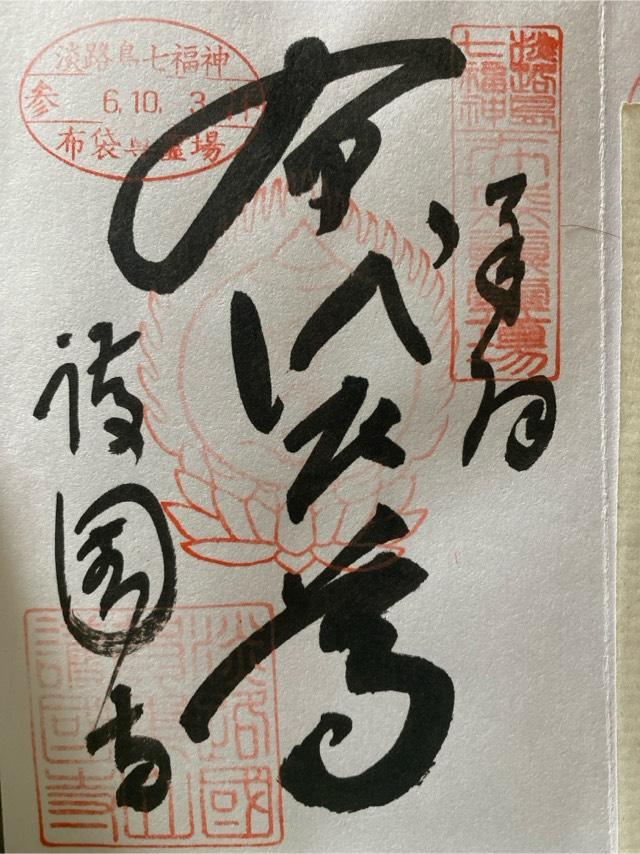 淡路島七福神
参 6.10.3 拝
布袋尊霊場
淡路島
七福神
布袋尊霊場
拝
布袋尊
護国寺
淡路國
護國寺